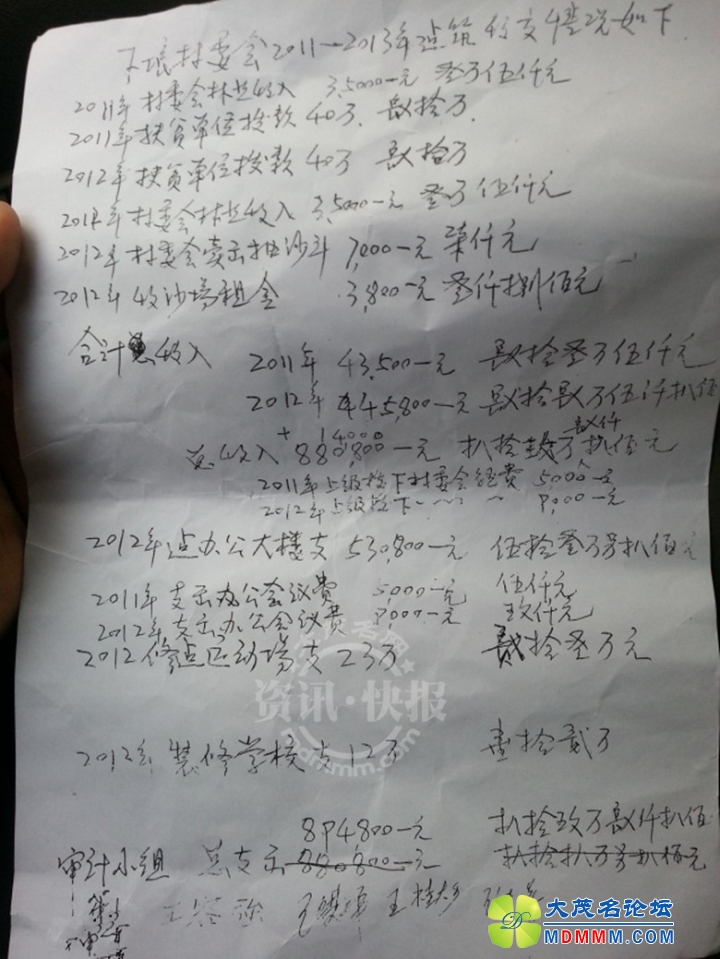 下垠村委会2011—2013年建筑收支情况如下
2011年村委会林场收入 3,5000-元 叁万伍仟元
2011年扶贫单位拨款40万 肆拾万
2012年扶贫单位拨款40万 肆拾万
2012年村委会林场收入 3,5000-元 叁万伍仟元
2012年村委会卖出抽沙斗 7,000-元 柒仟元
2012年收沙场租金 3,800-元 叁仟捌佰元
合计总收入 2011年 43,500-元 肆拾叁万伍仟元
2012年 445,800-元 肆拾肆万伍仟捌佰
+ 14000 肆仟
总收入 880,800-元 捌拾玖万捌佰元
2011年上级拨下村委会经费 5000-元
2012年上级拨下 ~ ~ ~ ~ 9,000-元
2012年建办公大楼支 530,800-元 伍拾叁万零捌佰元
2011年支出办公会议费 5000-元 伍仟元
2012年支出办公会议费 9000-元 玖仟元
2012修建运动场支23万 贰拾叁万元
资讯·快报
2012年装修学校支12万 壹拾贰万
894800-元 捌拾玖万肆仟捌佰
审计小组 总支出 880800-元 捌拾捌万零捌佰元
大茂名论坛
MDMMM.COM